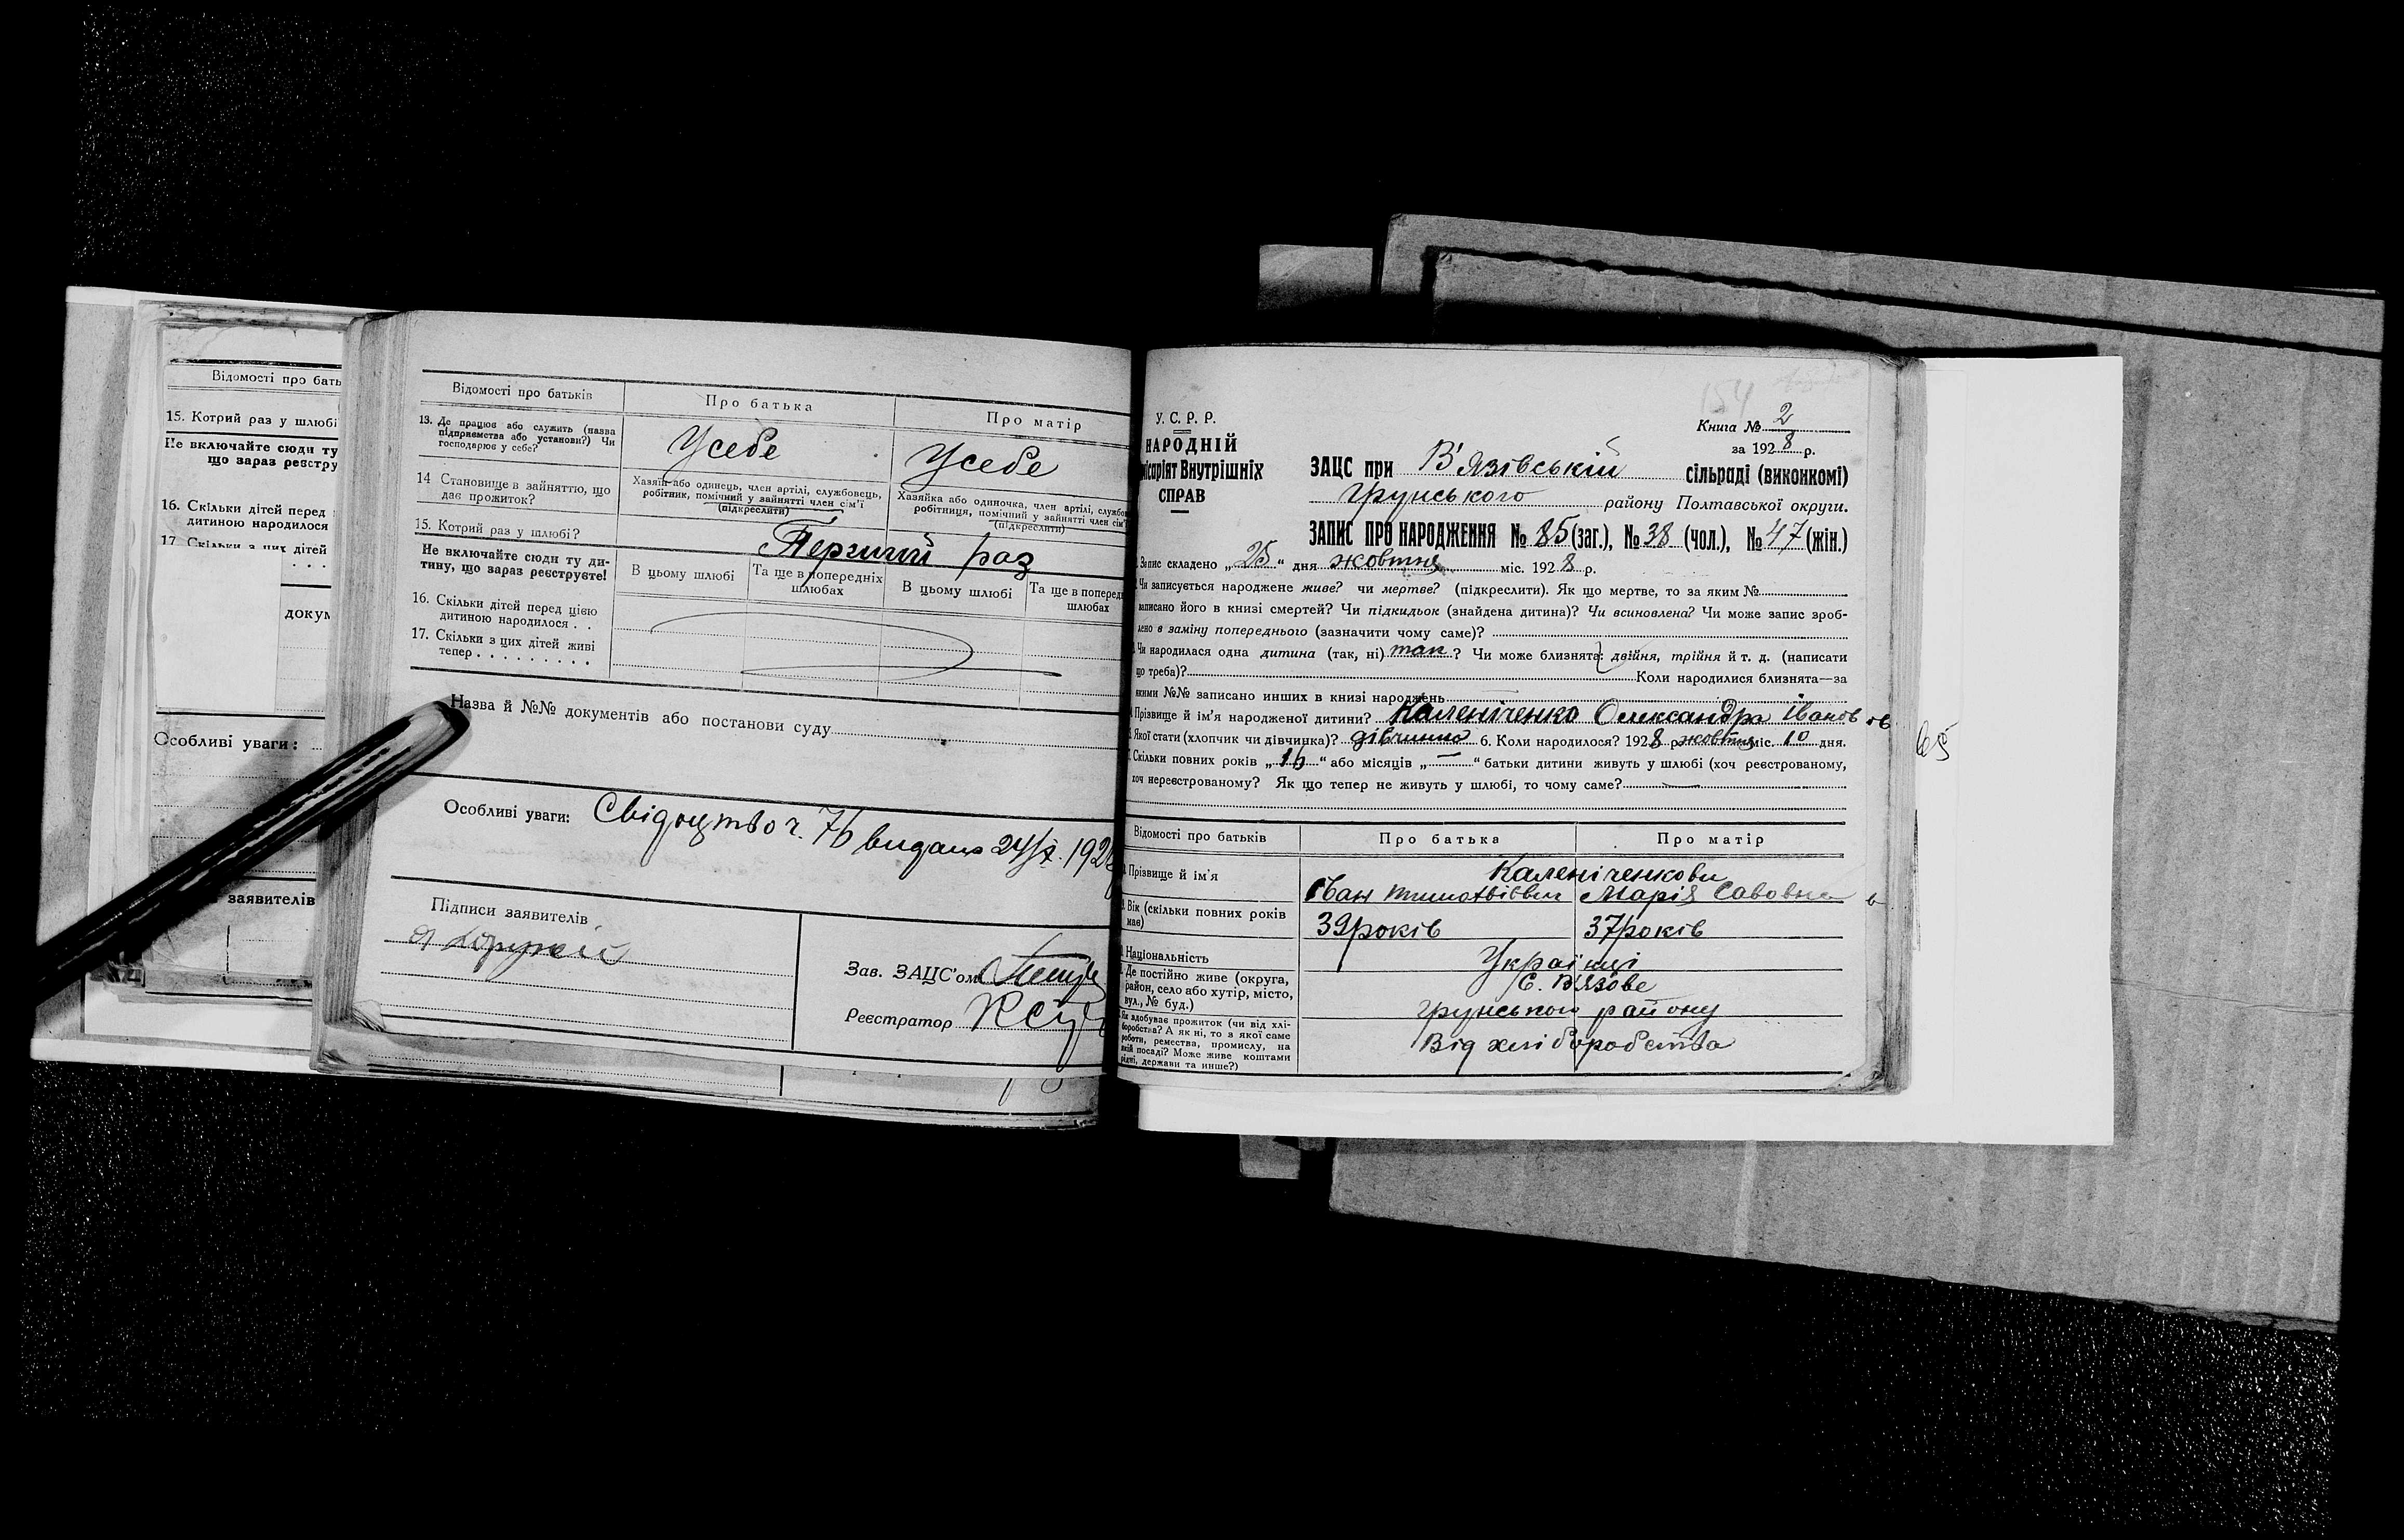 Відомості про бать
15. Котрий раз у шлюбі
Не включайте сюди ту
що зараз реєстру
16. Скільки дітей перед
дитиною народилося
17 Скільки з цих дітей
. . .
докум
Особливі уваги:
заявителів
Відомості про батьків
Про батька
Про матір
13. Де працює або служить (назва
підприємства або установи?) Чи
господарює у себе?
Усебе
Усебе
14 Становище в зайняттю, що
дає прожиток?
Хазяїн або одинець, член артілі, службовець,
робітник, помічний у зайнятті член сім'ї
(підкреслити)
Хазяйка або одиночка, член артілі, службов
робітниця, помічний у зайнятті член сім'
(підкреслити)
15. Котрий раз у шлюбі?
Перший раз
Не включайте сюди ту ди-
тину, що зараз реєструєте!
В цьому шлюбі
Та ще в попередніх
шлюбах
В цьому шлюбі
Та ще в поперед
шлюбах
16. Скільки дітей перед цією
дитиною народилося . .
17. Скільки з цих дітей живі
тепер . . . . . . . . .
Назва й №№ документів або постанови суду
Особливі уваги: Свідоцтво ч. 76 видано 24/X. 192
Підписи заявителів
Зав. ЗАЦС'ом
Реєстратор
154
У. С. Р. Р.
НАРОДНІЙ
місаріят Внутрішніх
СПРАВ
Книга № 2
за 1928 р.
ЗАЦС при В'язівській сільраді (виконкомі)
Грунського району Полтавської округи.
ЗАПИС ПРО НАРОДЖЕННЯ № 85 (заг.), № 38 (чол.), № 47 (жін.)
Запис складено „25" дня жовтня міс. 1928 р.
Чи записується народжене живе? чи мертве? (підкреслити). Як що мертве, то за яким №
записано його в книзі смертей? Чи підкидьок (знайдена дитина)? Чи всиновлена? Чи може запис зроб-
лено в заміну попереднього (зазначити чому саме)?
Чи народилася одна дитина (так, ні) так? Чи може близнята: двійня, трійня й т. д. (написати
що треба)? Коли народилися близнята—за
якими №№ записано инших в книзі народжень
Прізвище й ім'я народженої дитини? Каленіченко Олександра Іванов
Якої стати (хлопчик чи дівчинка)? дівчина 6. Коли народилося? 1928 р жовтня міс. 10 дня.
Скільки повних років „16" або місяців „—" батьки дитини живуть у шлюбі (хоч реєстрованому,
хоч нереєстрованому? Як що тепер не живуть у шлюбі, то чому саме?
65
Відомості про батьків
Про батька
Про матір
Прізвище й ім'я
Каленіченкови
Іван Тимотвієвич
Марія Савовна
Вік (скільки повних років
має)
39років
37років
Національність
Українці
Де постійно живе (округа,
район, село або хутір, місто,
вул., № буд.)
С. В'язове
Грунського району
Як здобуває прожиток (чи від хлі-
боробства? А як ні, то з якої саме
роботи, ремества, промислу, на
якій посаді? Може живе коштами
рідні, держави та инше?)
Від хліборобства